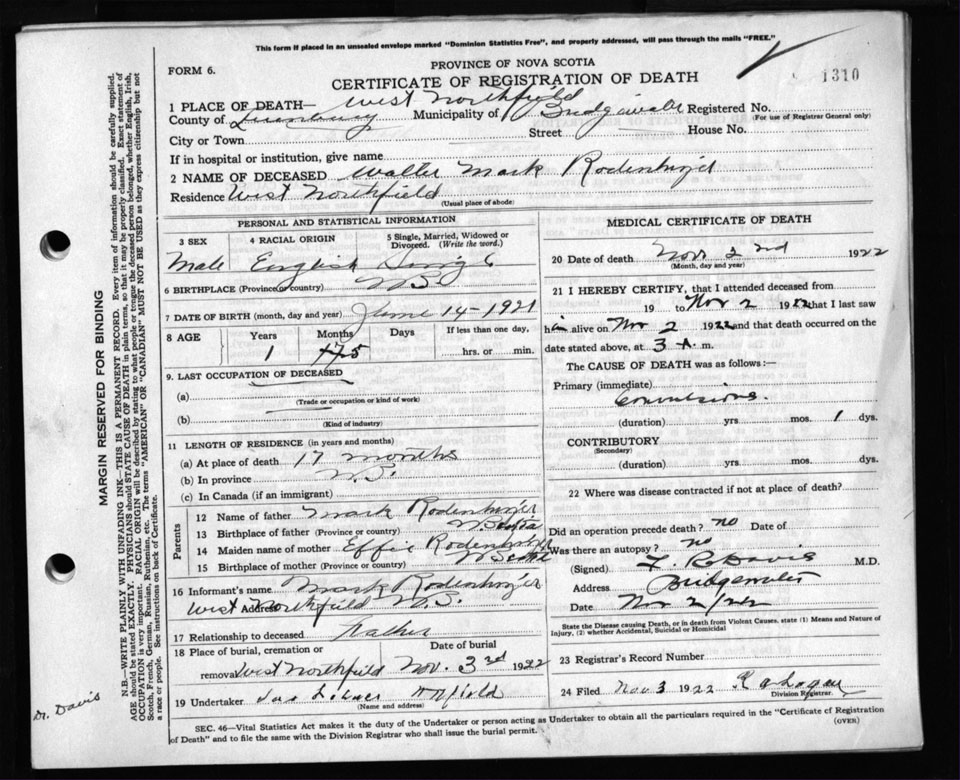 This form if placed in an unsealed envelope marked "Dominion Statistics Free", and properly addressed, will pass through the mails "FREE."
PROVINCE OF NOVA SCOTIA
FORM 6.
CERTIFICATE OF REGISTRATION OF DEATH
1310
1 PLACE OF DEATH— West Northfield
County of Lunenburg Municipality of Registered No.
(For use of Registrar General only)
City or Town Street House No.
If in hospital or institution, give name
2 NAME OF DECEASED Walter Mark Rodenhizer
Residence West Northfield
(Usual place of abode)
PERSONAL AND STATISTICAL INFORMATION
3 SEX 4 RACIAL ORIGIN 5 Single, Married, Widowed or Divorced. (Write the word.)
Male English Single
6 BIRTHPLACE (Province or country) N.S.
7 DATE OF BIRTH (month, day and year) June 14-1921
8 AGE Years Months Days If less than one day,
1 5 hrs. or min.
9. LAST OCCUPATION OF DECEASED
(a)
(Trade or occupation or kind of work)
(b)
(Kind of industry)
11 LENGTH OF RESIDENCE (in years and months)
(a) At place of death 17 months
(b) In province N.S.
(c) In Canada (if an immigrant)
Parents
12 Name of father Mark Rodenhizer
13 Birthplace of father (Province or country) N. Scotia
14 Maiden name of mother Effie Rodenhizer
15 Birthplace of mother (Province or country) N Scotia
16 Informant's name Mark Rodenhizer
Address West Northfield N.S.
17 Relationship to deceased Father
18 Place of burial, cremation or removal Date of burial
West Northfield Nov. 3rd 1922
19 Undertaker N Nfield
(Name and address)
MEDICAL CERTIFICATE OF DEATH
20 Date of death Nov 2nd 1922
(Month, day and year)
21 I HEREBY CERTIFY, that I attended deceased from
19 to Nov 2 1922 that I last saw
him alive on Nov 2 1922 and that death occurred on
date stated above, at 3 A. m.
The CAUSE OF DEATH was as follows:—
Primary (immediate)
Convulsions.
(duration) yrs. mos. 1 dys.
CONTRIBUTORY
(Secondary)
(duration) yrs. mos. dys.
22 Where was disease contracted if not at place of death?
Did an operation precede death? no Date of
Was there an autopsy? no
(Signed) Davis M.D.
Address Bridgewater
Date Nov 2/22
State the Disease causing Death, or in death from Violent Causes, state (1) Means and Nature of Injury, (2) whether Accidental, Suicidal or Homicidal
23 Registrar's Record Number
24 Filed Nov 3 1922
Division Registrar.
SEC. 46—Vital Statistics Act makes it the duty of the Undertaker or person acting as Undertaker to obtain all the particulars required in the "Certificate of Registration
of Death" and to file the same with the Division Registrar who shall issue the burial permit.
(OVER)
MARGIN RESERVED FOR BINDING
N.B.—WRITE PLAINLY WITH UNFADING INK—THIS IS A PERMANENT RECORD. Every item of information should be carefully supplied.
AGE should be stated EXACTLY. PHYSICIANS should STATE CAUSE OF DEATH in plain terms, so that it may be properly classified. Exact statement of
OCCUPATION is very important. RACIAL ORIGIN will be described by stating to what people or tongue the deceased person belonged, whether English, Irish,
Scotch, French, German, Russian, Ruthenian, etc. The terms "AMERICAN" or "CANADIAN" MUST NOT BE USED as they express citizenship but not
a race or people. See instructions on back of Certificate.
Dr. Davis